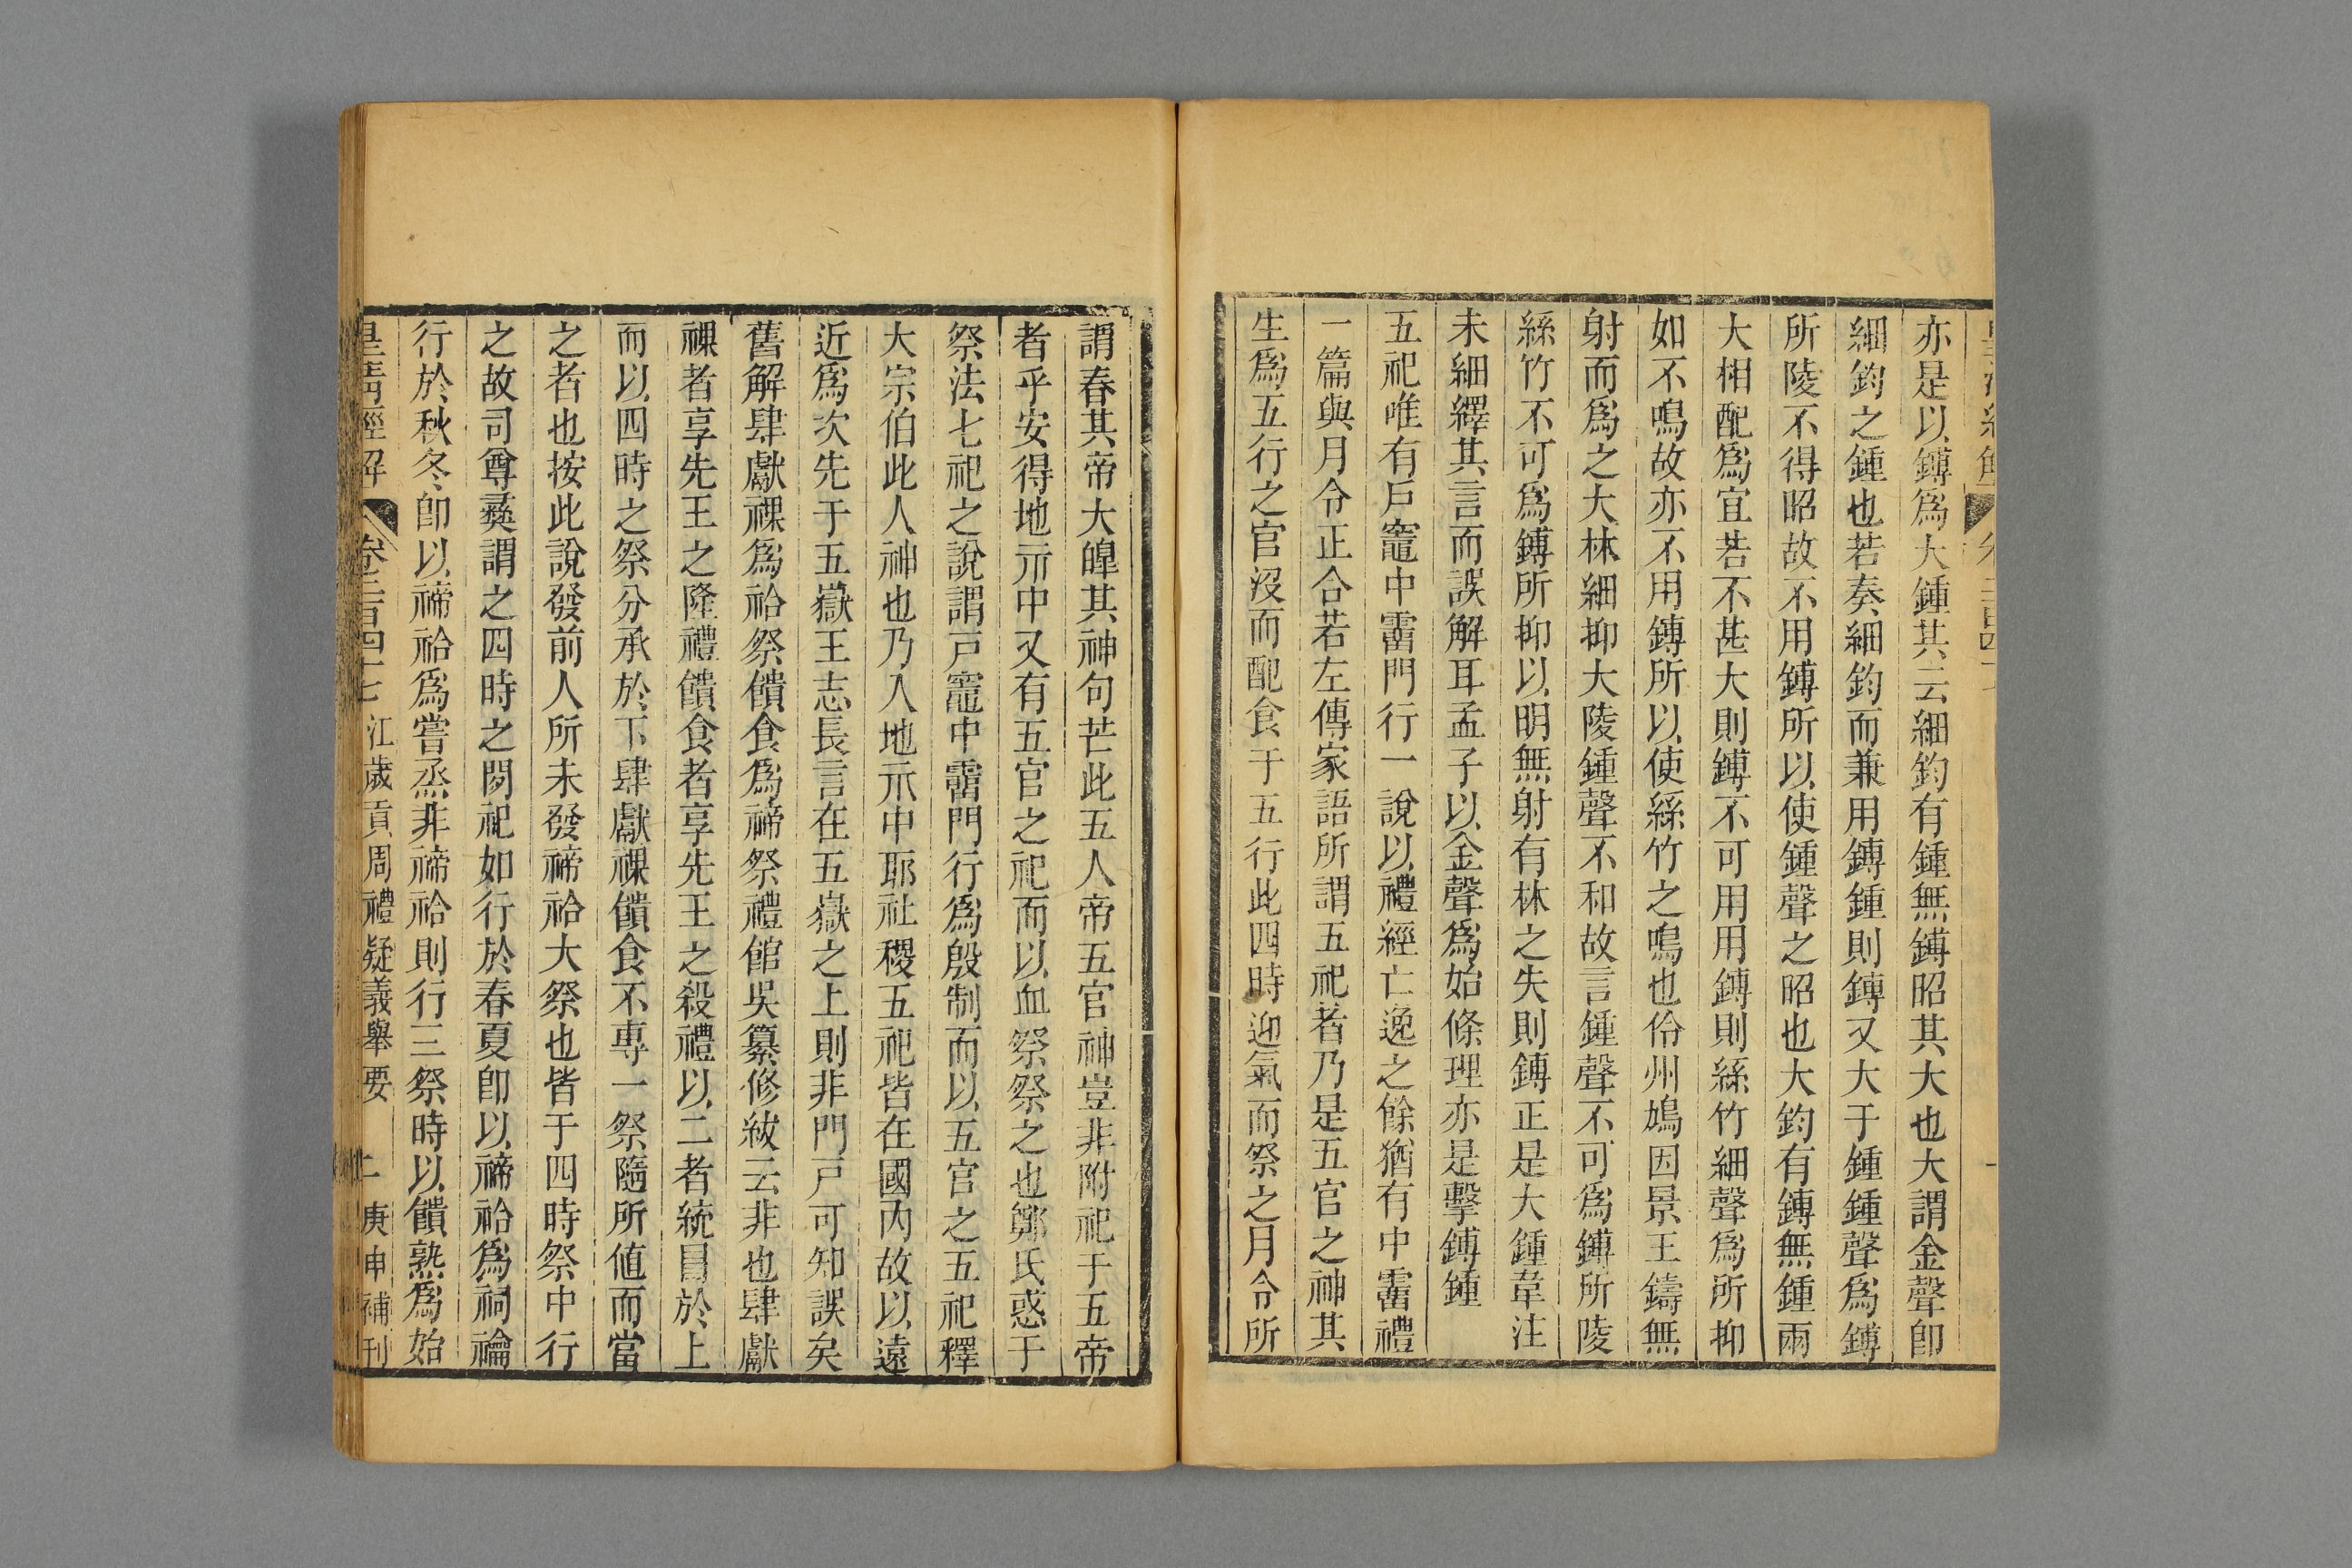 亦是以鎛爲大鍾其云細鈞有鍾無鎛昭其大也大謂金聲卽
細鈞之鍾也若奏細鈞而兼用鎛鍾則鎛又大于鍾鍾聲爲鎛
所陵不得昭故不用鎛所以使鍾聲之昭也大鈞有鎛無鍾兩
大相配爲宜若不甚大則鎛不可用用鎛則絲竹細聲爲所抑
如不鳴故亦不用鎛所以使絲竹之鳴也伶州鳩因景王鑄無
射而爲之大林細抑大陵鍾聲不和故言鍾聲不可爲鎛所陵
絲竹不可爲鎛所抑以明無射有林之失則鎛正是大鍾韋注
未細繹其言而誤解耳孟子以金聲爲始條理亦是擊鎛鍾
五祀唯有戶竈中霤門行一說以禮經亡逸之餘猶有中霤禮
一篇與月令正合若左傳家語所謂五祀者乃是五官之神其
生爲五行之官沒而配食于五行此四時迎氣而祭之月令所
謂春其帝大皥其神句芒此五人帝五官神豈非附祀于五帝
者乎安得地示中又有五官之祀而以血祭祭之也鄭氏惑于
祭法七祀之說謂戶竈中霤門行爲殷制而以五官之五祀釋
大宗伯此人神也乃入地示中耶社稷五祀皆在國內故以遠
近爲次先于五嶽王志長言在五嶽之上則非門戶可知誤矣
舊解肆獻祼爲祫祭饋食爲禘祭禮館吳纂修紱云非也肆獻
祼者享先王之隆禮饋食者享先王之殺禮以二者統冒於上
而以四時之祭分承於下肆獻祼饋食不專一祭隨所値而當
之者也按此說發前人所未發禘祫大祭也皆于四時祭中行
之故司尊彝謂之四時之閒祀如行於春夏卽以禘祫爲祠禴
行於秋冬卽以禘祫爲嘗烝非禘祫則行三祭時以饋熟爲始
皇淸經解 卷二百四十七 江歲貢周禮疑義舉要 二 庚申補刊